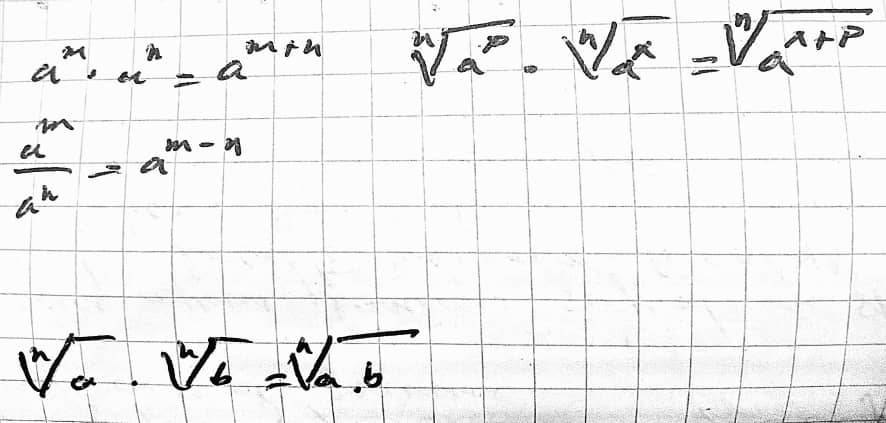 aᵐ · aⁿ = aᵐ⁺ⁿ    ⁿ√(aᵖ) · ⁿ√(aˣ) = ⁿ√(aˣ⁺ᵖ)
aᵐ/aⁿ = aᵐ⁻ⁿ
ⁿ√a · ⁿ√b = ⁿ√(a.b)